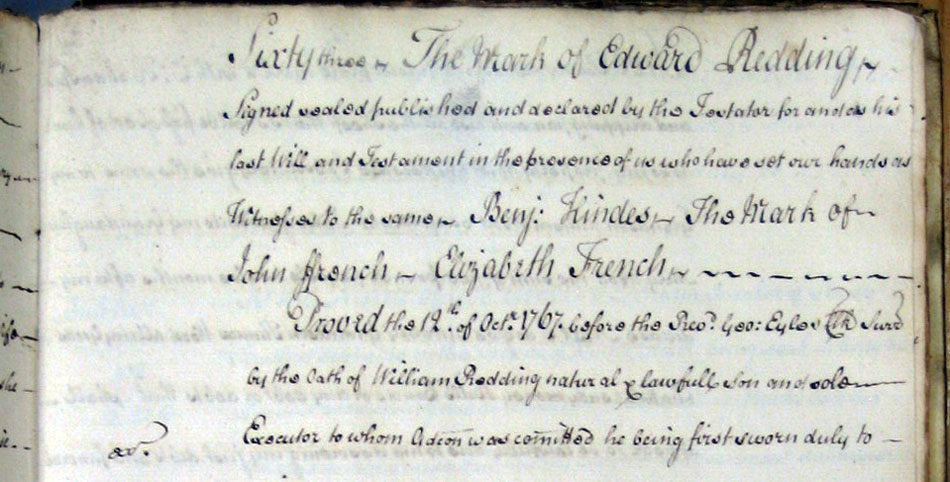 Sixty three ~ The Mark of Edward Redding ~
Signed sealed published and declared by the Testator for and as his
last Will and Testament in the presence of us who have set our hands as
Witnesses to the same ~ Benj: Hindes ~ The Mark of ~
John ffrench ~ Elizabeth French ~
Proved the 12th. of Octr. 1767. before the Revd. Geo: Eyles Surr
by the Oath of William Redding natural & lawfull Son and sole
Executor to whom Adcon was comitted he being first sworn duly to